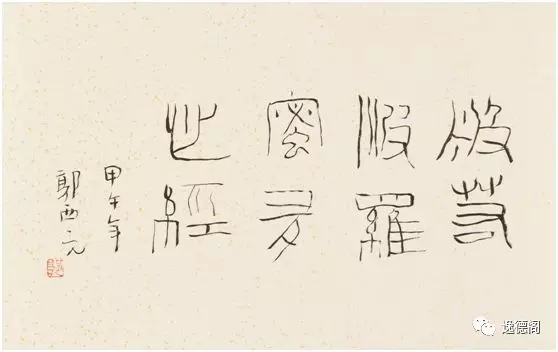 般若
波羅
蜜多
心經
甲午年
郭西元
逸德阁